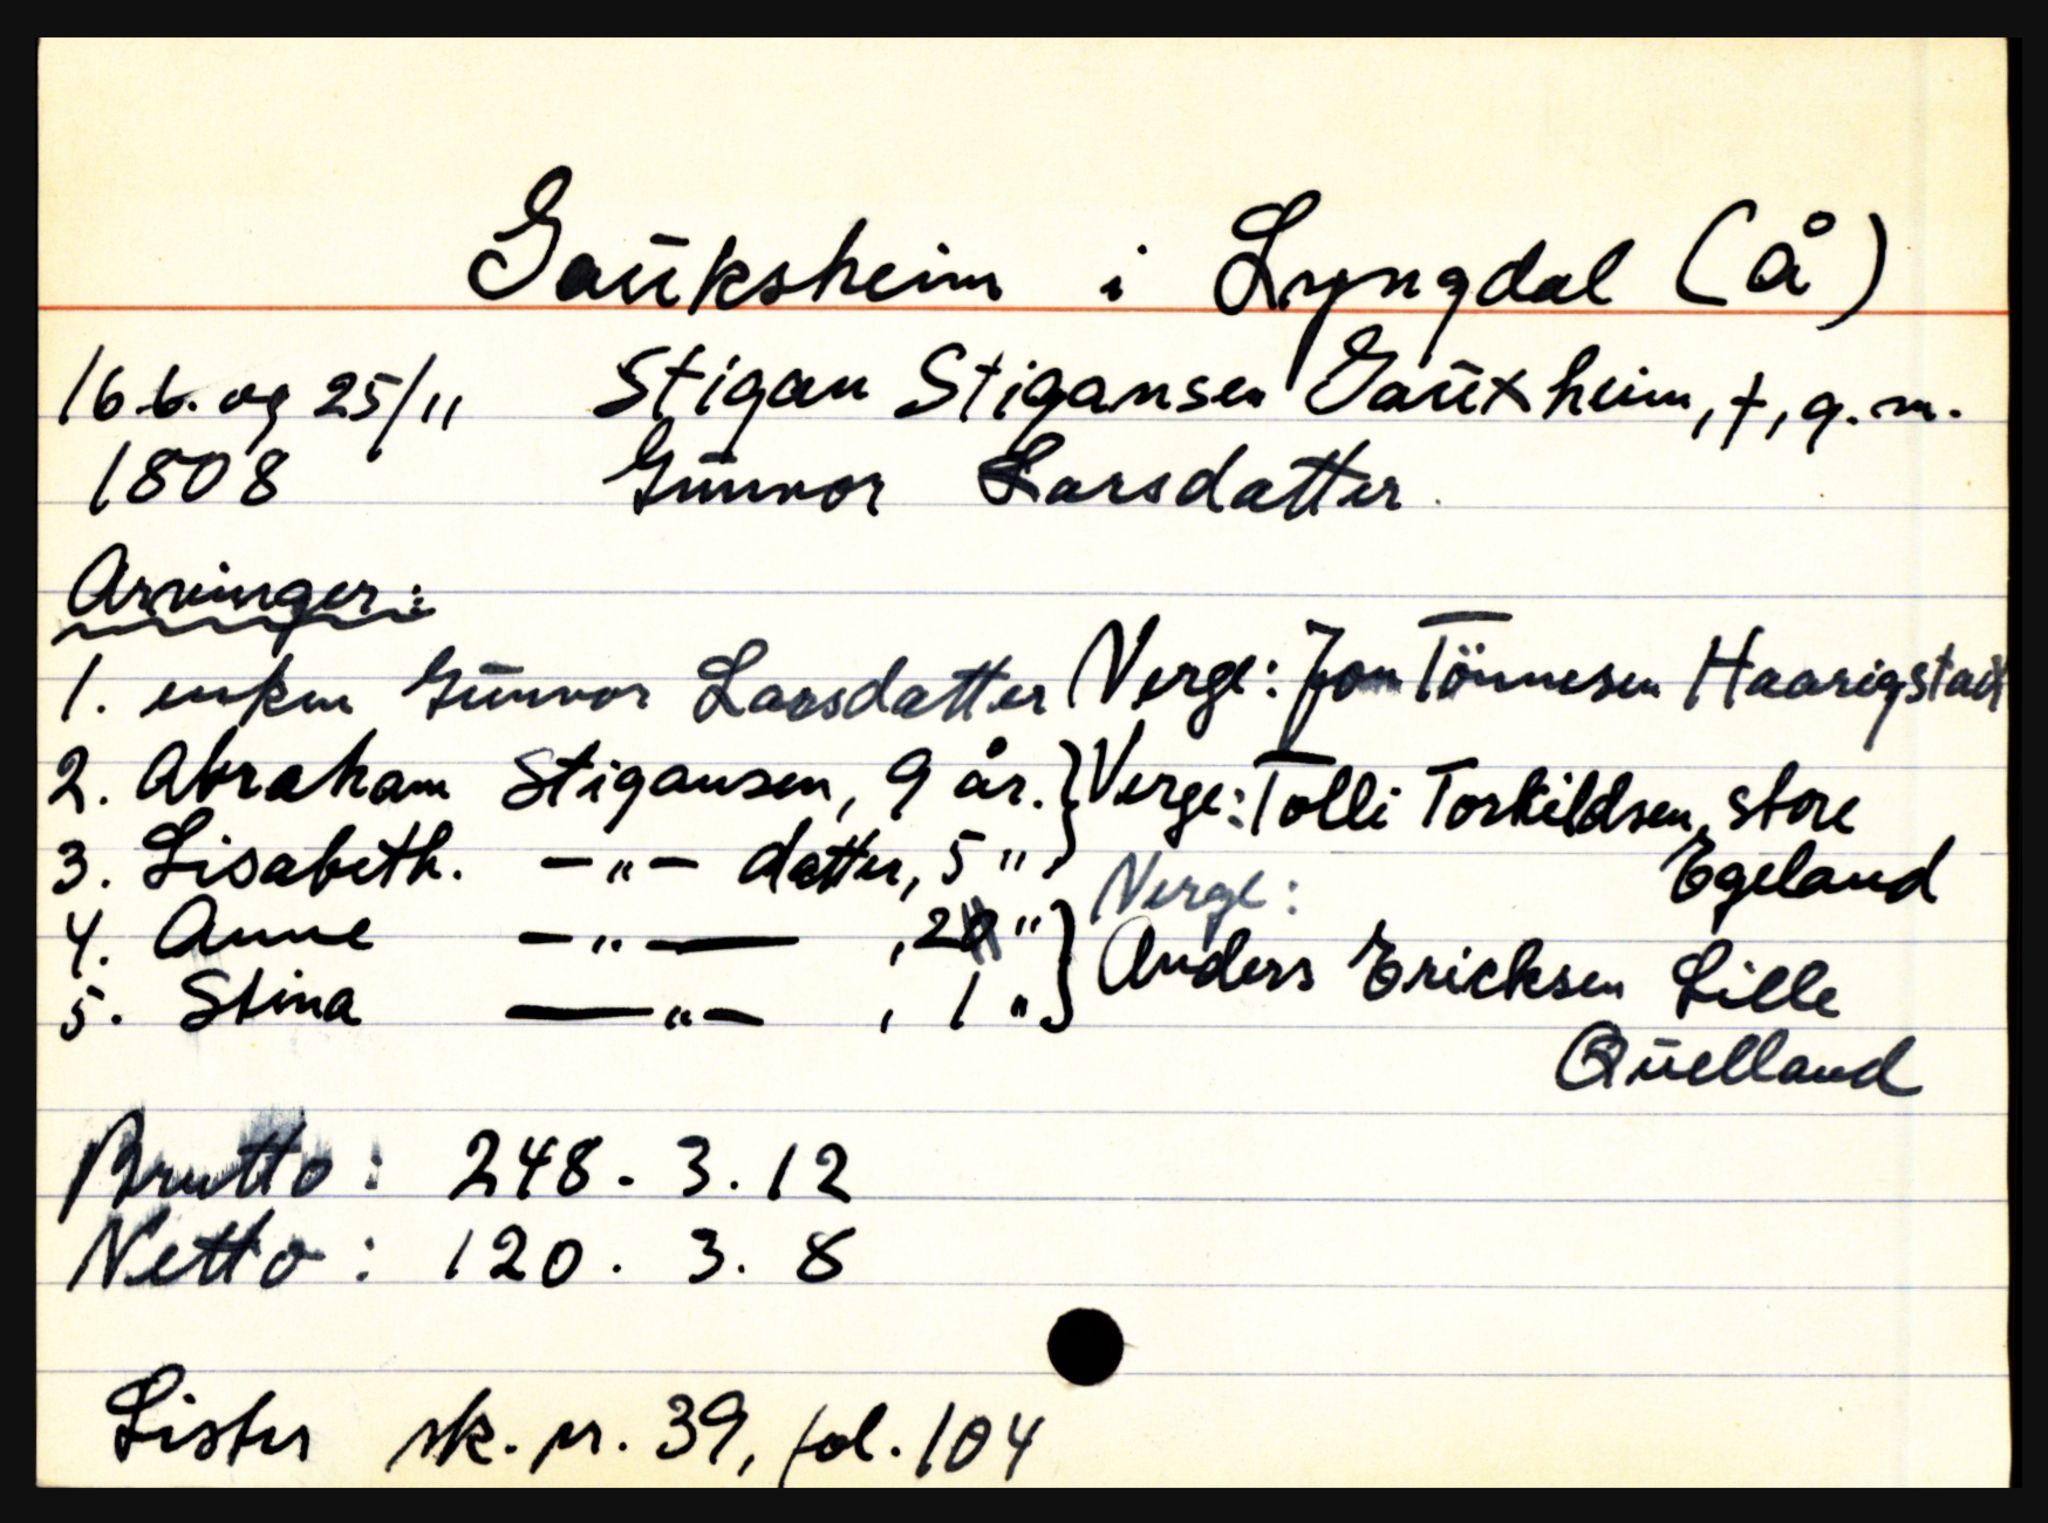 Gauksheim i Lyngdal (Å)
16.6. og 25/11 Stigan Stigansen Gauxheim, †, g. m.
1808 Gunvor Larsdatter
Arvinger:
1. enken Gunvor Larsdatter Verge: Jon Tönnesen Haarigstad
2. Abraham Stigansen, 9 år. } Verge: Tolli Torkildsen, store
3. Lisabeth. -"- datter, 5 " } Egeland
4. Anne -"- , " } Verge:
5. Stina -"- , 1 " } Anders Ericksen Lille
Quelland
Brutto: 248. 3. 12
Netto: 120. 3. 8
Lister sk. pr. 39, fol. 104